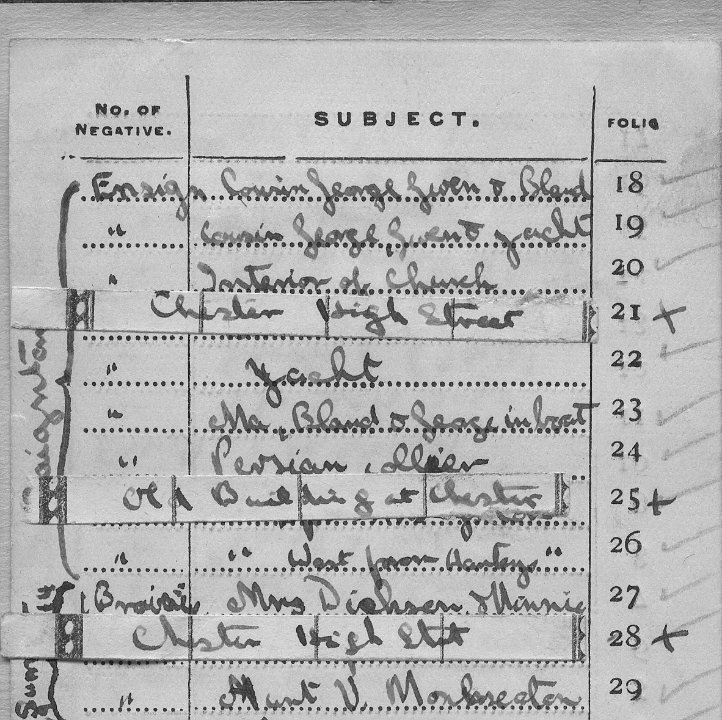 No. OF NEGATIVE. SUBJECT. FOLIO
Ensign Cousin George Gwen & Bland 18
" Cousin George, Gwen & yacht 19
" Interior of Church 20
Chester High Street 21 +
" Yacht 22
" Ma, Bland & George in boat 23
" Persian 24
Old Building at Chester 25 +
" " West from " 26
Mrs Dickson & Minnie 27
Chester High 28 +
" Aunt V. 29